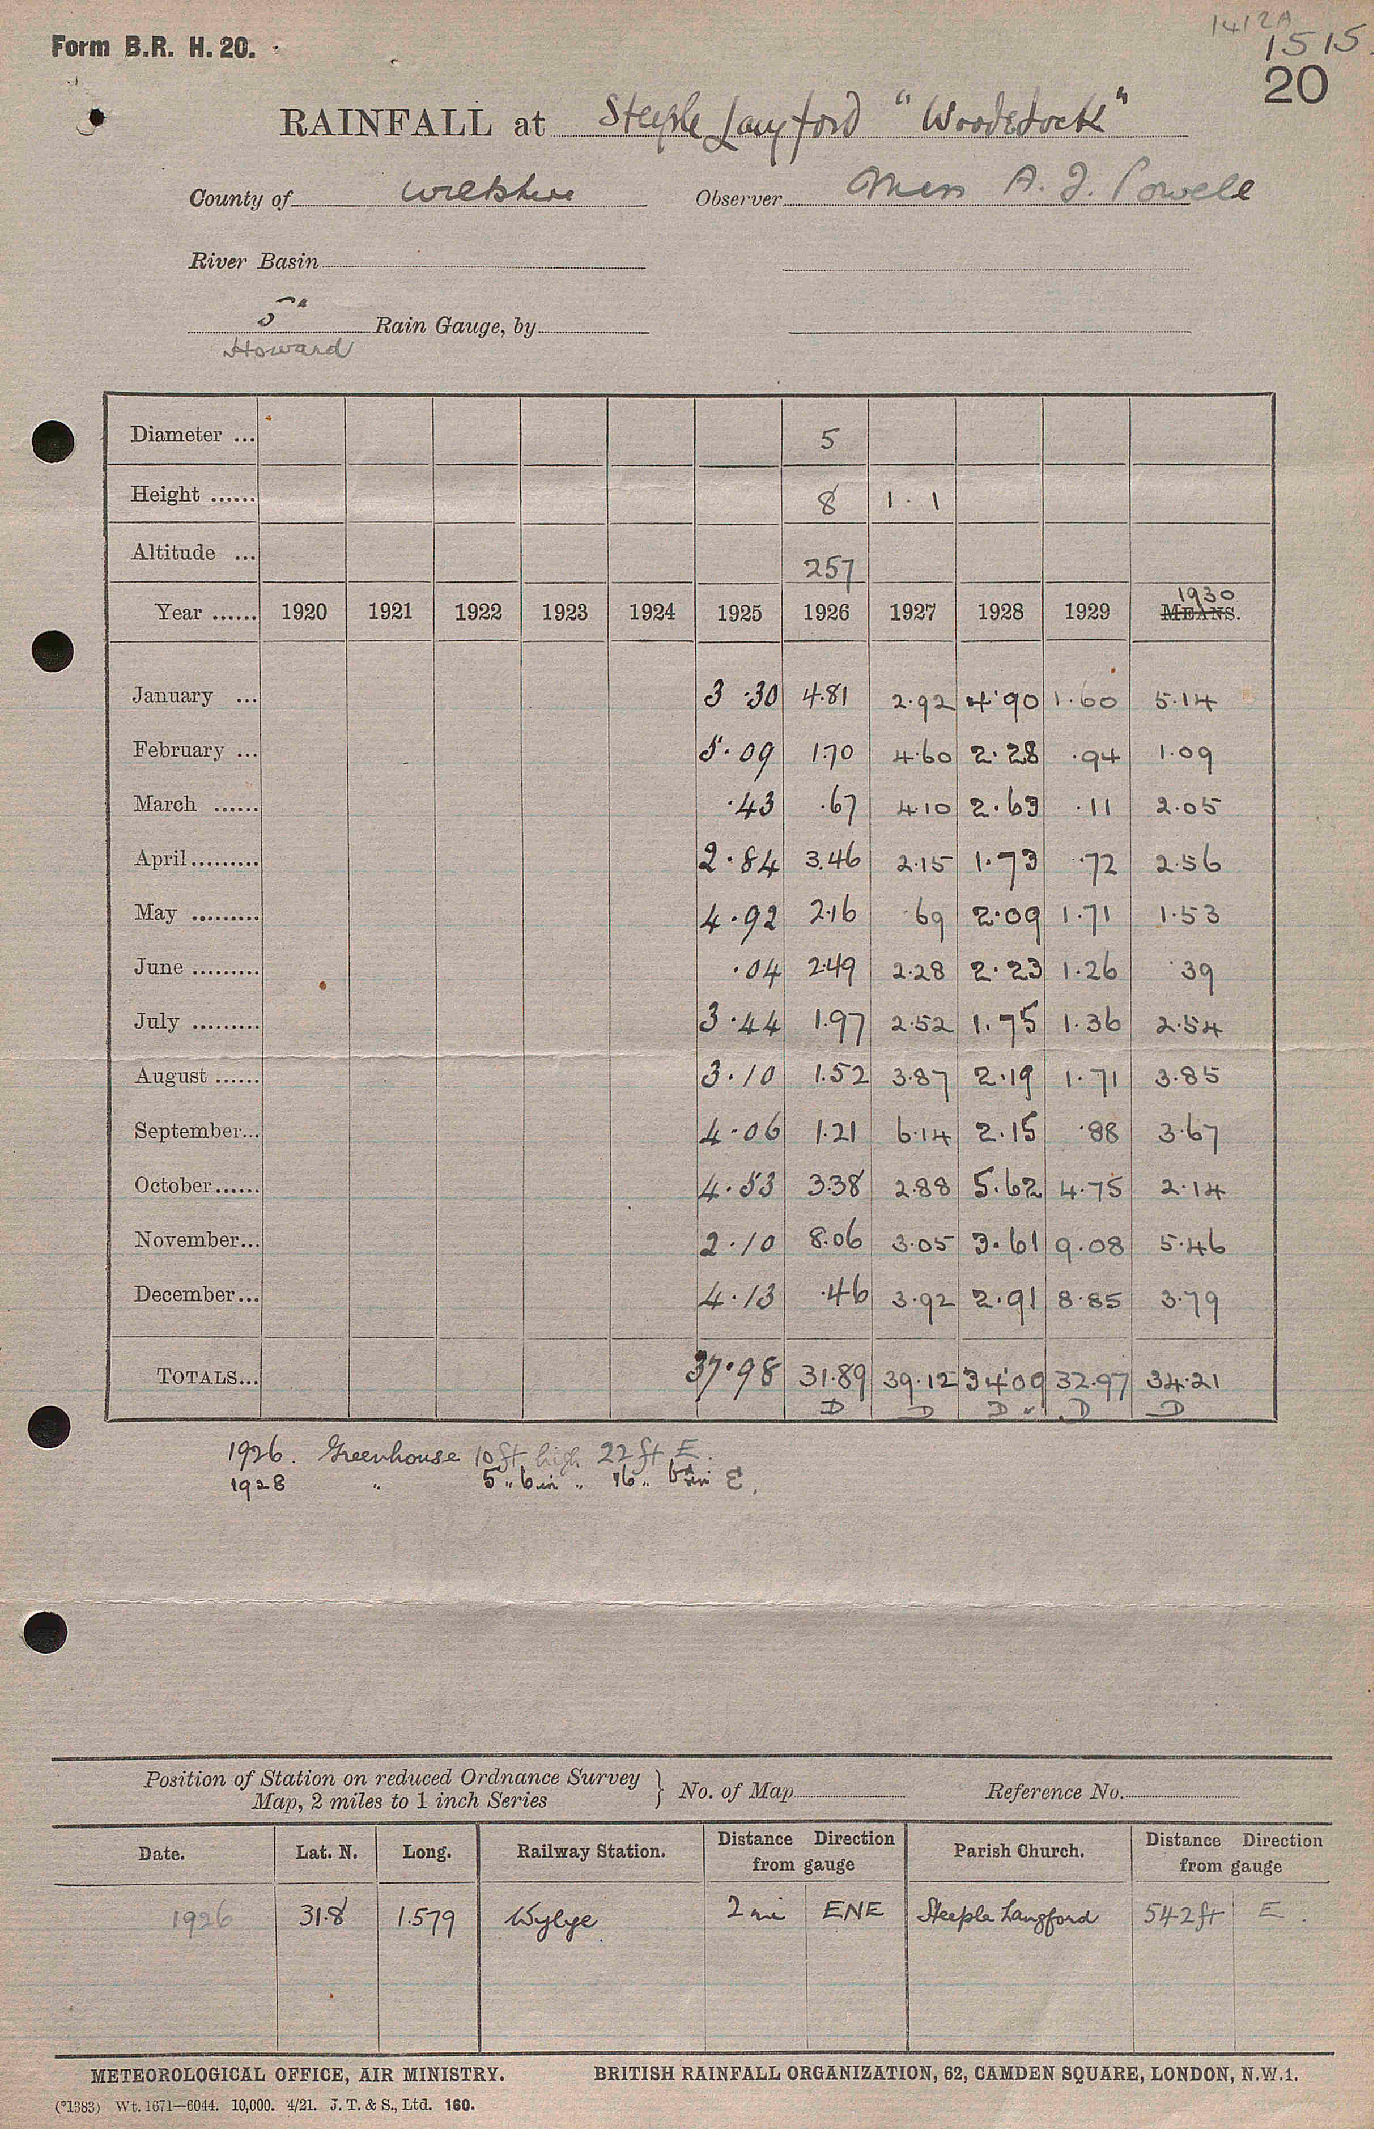 Form B.R. H. 20.
1412A
1515.
20
RAINFALL at Steeple Langford "Woodstock"
County of Wiltshire Observer Miss A. J. Powell
River Basin
5" Rain Gauge, by
Howard
Diameter ... 5
Height ...... 8 1 . 1
Altitude ... 257
Year ...... 1920 1921 1922 1923 1924 1925 1926 1927 1928 1929 1930 MEANS.
January ... 3.30 4.81 2.92 4.90 1.60 5.14
February ... 5.09 1.70 4.60 2.28 .94 1.09
March ...... .43 .67 4.10 2.63 .11 2.05
April ......... 2.84 3.46 2.15 1.73 .72 2.56
May ......... 4.92 2.16 .69 2.09 1.71 1.53
June ......... .04 2.49 2.28 2.23 1.26 .39
July ......... 3.44 1.97 2.52 1.75 1.36 2.54
August ...... 3.10 1.52 3.87 2.19 1.71 3.85
September... 4.06 1.21 6.14 2.15 .88 3.67
October...... 4.53 3.38 2.88 5.62 4.75 2.14
November... 2.10 8.06 3.05 3.61 9.08 5.46
December... 4.13 .46 3.92 2.91 8.85 3.79
TOTALS... 37.98 31.89 39.12 34.09 32.97 34.21
D D D D D
1926. Greenhouse 10 ft high 22 ft E.
1928 " 5 " 6 in " 16 " 6 in E.
Position of Station on reduced Ordnance Survey
Map, 2 miles to 1 inch Series } No. of Map Reference No.
Date. Lat. N. Long. Railway Station. Distance Direction from gauge Parish Church. Distance Direction from gauge
1926 318 1.579 Wylye 2 mi ENE Steeple Langford 542 ft E.
METEOROLOGICAL OFFICE, AIR MINISTRY. BRITISH RAINFALL ORGANIZATION, 62, CAMDEN SQUARE, LONDON, N.W.1.
(*1383) Wt. 1671—6044. 10,000. 4/21. J. T. & S., Ltd. 160.